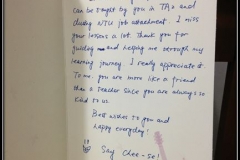 can be taught by you in TA2 and
during NTU job attachment. I miss
your lessons a lot. Thank you for
guiding and helping me through my
learning journey. I really appreciate it.
To me, you are more like a friend
than a teacher since you are always so
kind to us.
Best wishes to you and
happy everyday!
Say Chee-se!